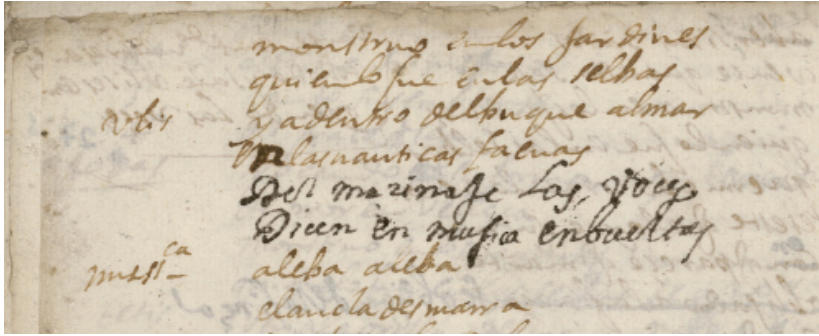 monstruo en los Jardines
quien lo fue en las selbas
Vlis y adentro del buque al mar
En las nauticas faenas
Del marinaJe Las, voces
Dicen en musica enbueltas
mussca aleba aleba
el ancla desmarra